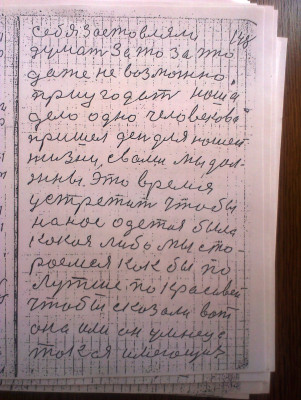 148
себя заставлям
думат за то за што
даже не возможно,
приугодат наша
дело одно человекова
пришел ден для нашей
жизни, с вами мы дол-
жны. Это время
устретит чтобы
на нас одетая была
какая либо мы сто
роемся как бы по
лутше, по красивей
чтобы сказали вот
она или он умнеце